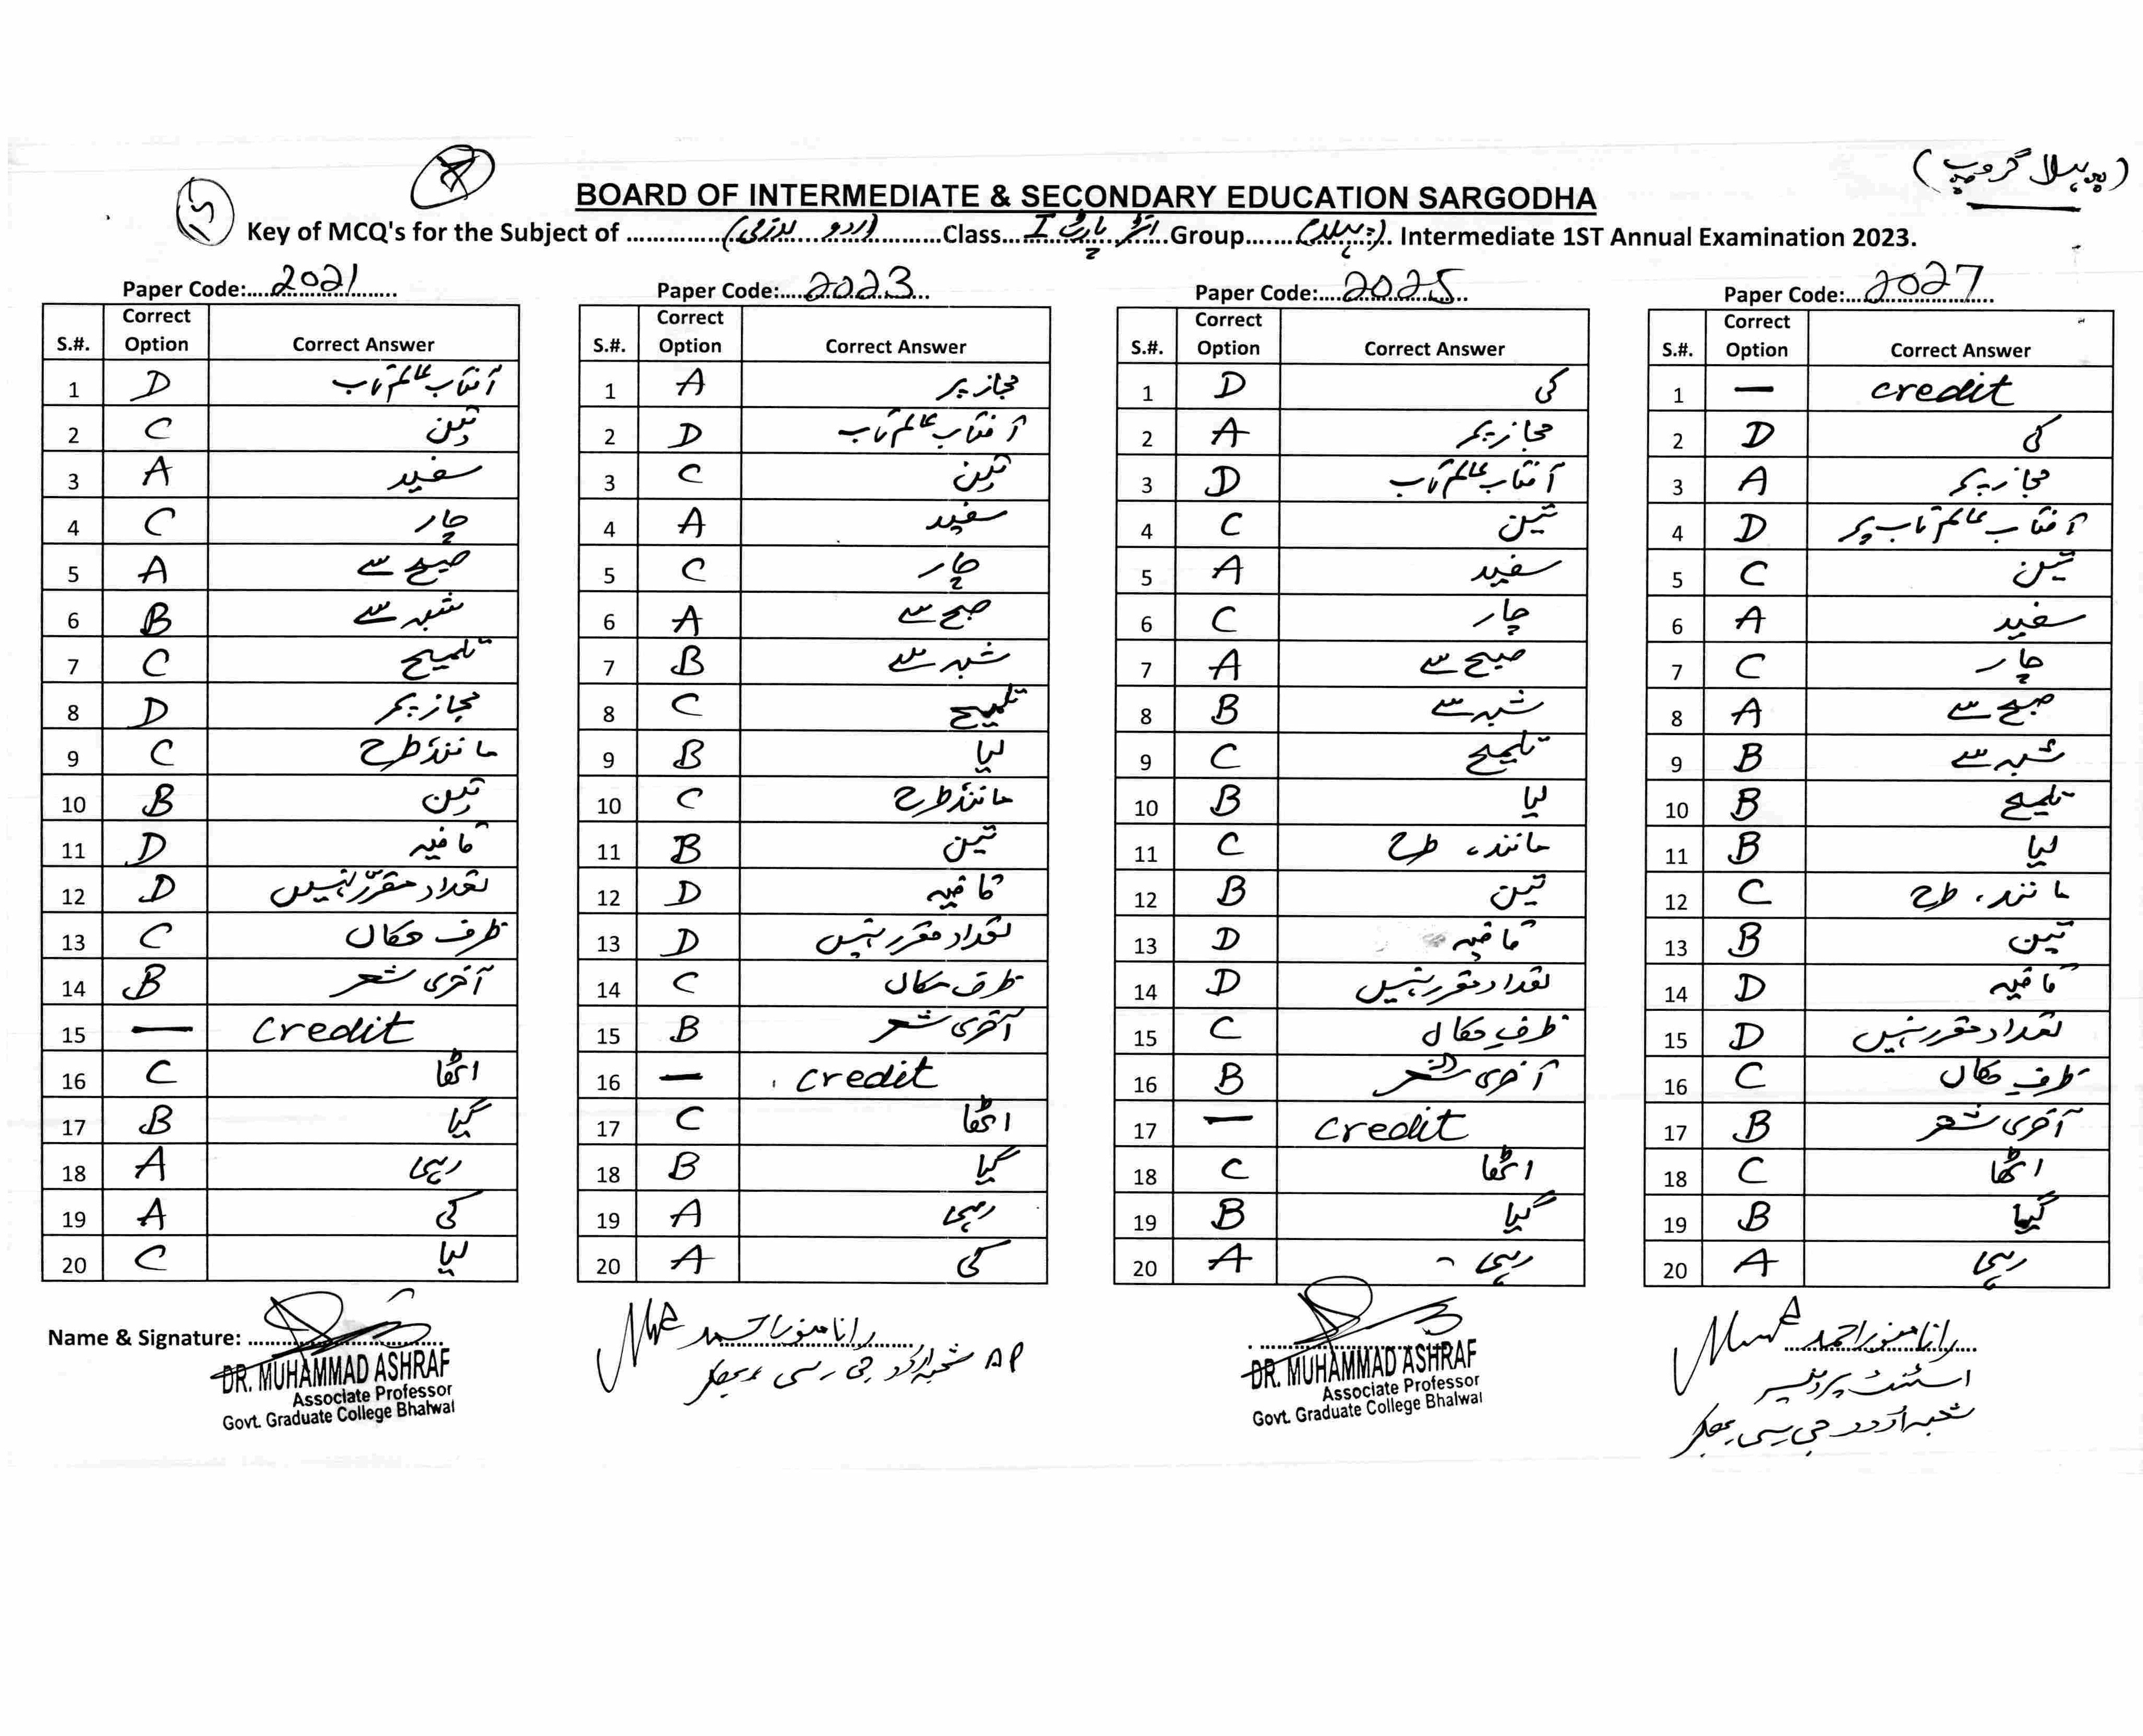 (پہلا گروپ)
BOARD OF INTERMEDIATE & SECONDARY EDUCATION SARGODHA
Key of MCQ's for the Subject of ......(اردو لازمی)......Class...انٹر پارٹ I...Group......(پہلا)... Intermediate 1ST Annual Examination 2023.
Paper Code:....2021
S.#. Correct Option Correct Answer
1 D آفتاب عالم تاب
2 C تین
3 A سفید
4 C چار
5 A صبح سے
6 B شبہ سے
7 C تلمیح
8 D مجاز پر
9 C مانند، طرح
10 B تین
11 D قافیہ
12 D تعداد مقرر نہیں
13 C ظرف مکاں
14 B آخری شعر
15 — Credit
16 C اٹھا
17 B گیا
18 A رہی
19 A کی
20 C لیا
Paper Code:....2023
S.#. Correct Option Correct Answer
1 A مجاز پر
2 D آفتاب عالم تاب
3 C تین
4 A سفید
5 C چار
6 A صبح سے
7 B شبہ سے
8 C تلمیح
9 B لیا
10 C مانند، طرح
11 B تین
12 D قافیہ
13 D تعداد مقرر نہیں
14 C ظرف مکاں
15 B آخری شعر
16 — credit
17 C اٹھا
18 B گیا
19 A رہی
20 A کی
Paper Code:....2025
S.#. Correct Option Correct Answer
1 D کی
2 A مجاز پر
3 D آفتاب عالم تاب
4 C تین
5 A سفید
6 C چار
7 A صبح سے
8 B شبہ سے
9 C تلمیح
10 B لیا
11 C مانند، طرح
12 B تین
13 D قافیہ
14 D تعداد مقرر نہیں
15 C ظرف مکاں
16 B آخری شعر
17 — Credit
18 C اٹھا
19 B گیا
20 A رہی
Paper Code:....2027
S.#. Correct Option Correct Answer
1 — credit
2 D کی
3 A مجاز پر
4 D آفتاب عالم تاب پر
5 C تین
6 A سفید
7 C چار
8 A صبح سے
9 B شبہ سے
10 B تلمیح
11 B لیا
12 C مانند، طرح
13 B تین
14 D قافیہ
15 D تعداد مقرر نہیں
16 C ظرف مکاں
17 B آخری شعر
18 C اٹھا
19 B گیا
20 A رہی
Name & Signature: ......
DR. MUHAMMAD ASHRAF
Associate Professor
Govt. Graduate College Bhalwal
رانا منور احمد
AP شعبہ اردو جی سی بھکر
DR. MUHAMMAD ASHRAF
Associate Professor
Govt. Graduate College Bhalwal
رانا منور احمد
اسسٹنٹ پروفیسر
شعبہ اردو جی سی بھکر